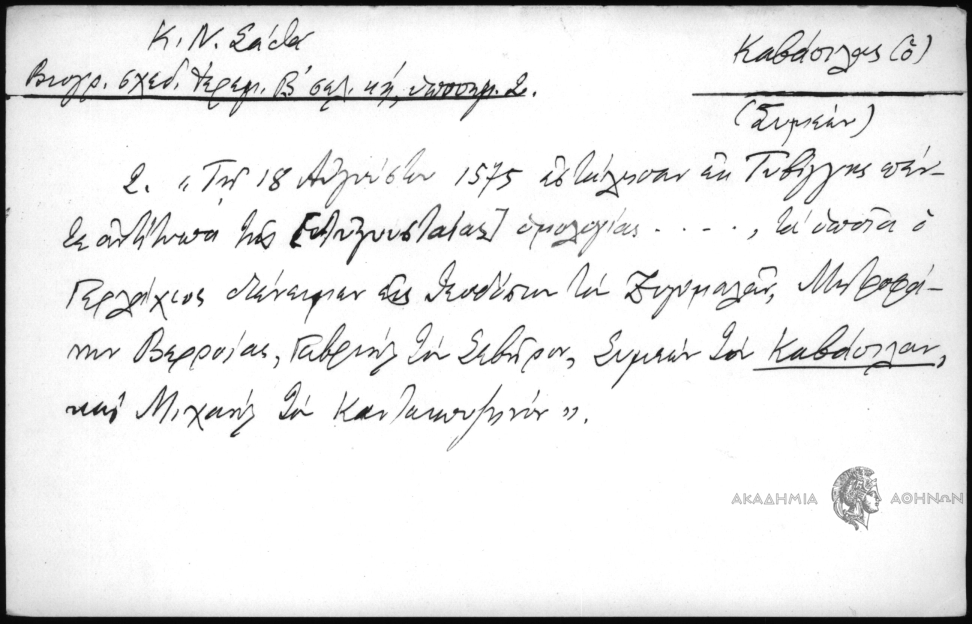 Κ. Ν. Σάθα
Βιογρ. σχεδ. Ἱερεμ. Β΄ σελ. κή, ὑποσημ. 2.
Καβάσιλας (ὁ)
(Συμεών)
2. «Τῇ 18 Αὐγούστου 1575 ἐστάλησαν ἐκ Τυβίγγης πέν-
τε ἀντίτυπα τῆς [Αὐγουσταίας] ὁμολογίας . . . . , τὰ ὁποῖα ὁ
Γερλάχιος διένειμεν εἰς Θεοδόσιον τὸν Ζυγομαλᾶν, Μητροφά-
νην Βερροίας, Γαβριὴλ τὸν Σεβῆρον, Συμεὼν τὸν Καβάσιλαν,
καὶ Μιχαὴλ τὸν Καντακουζηνόν».
ΑΚΑΔΗΜΙΑ ΑΘΗΝΩΝ